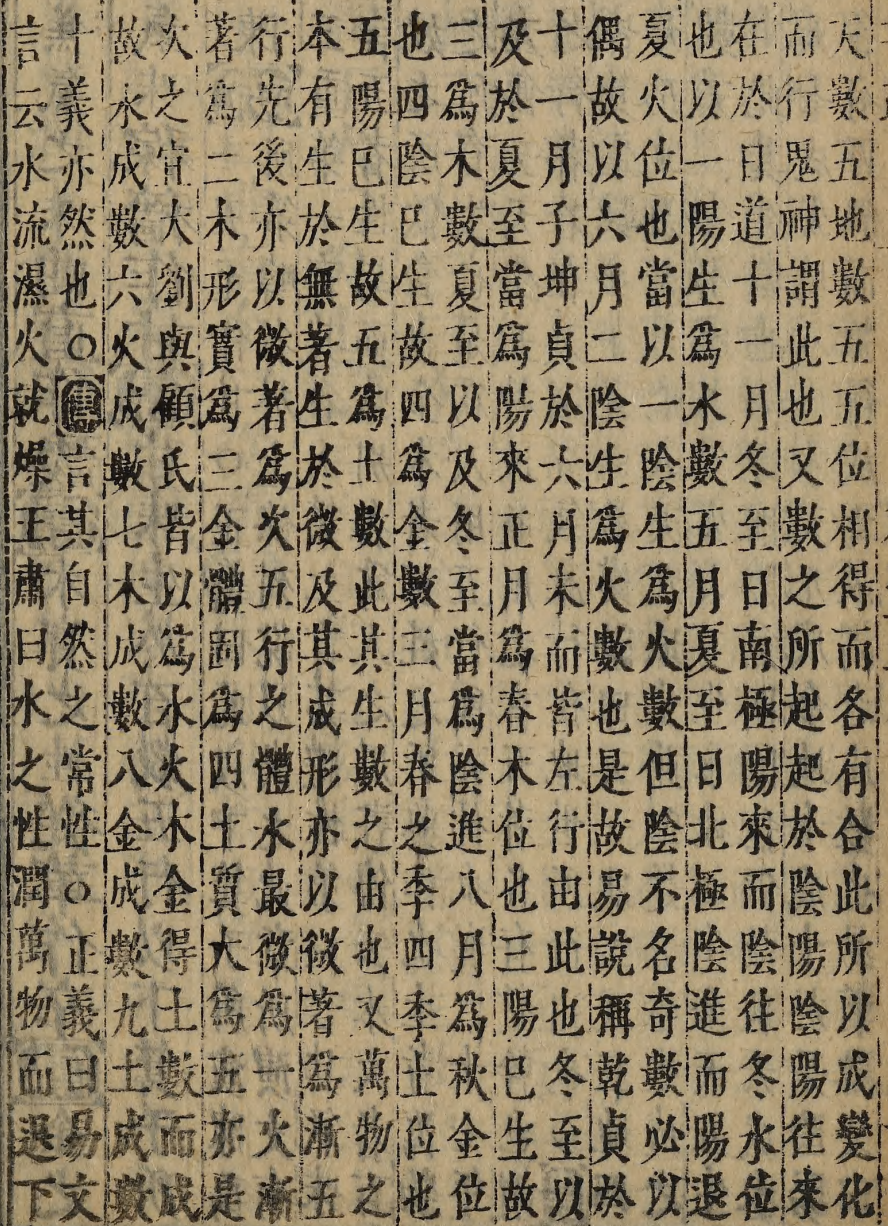 天數五地數五五位相得而各有合此所以成變化
而行鬼神謂此也又數之所起起於陰陽陰陽往來
在於日道十一月冬至日南極陽來而陰往冬水位
也以一陽生爲水數五月夏至日北極陰進而陽退
夏火位也當以一陰生爲火數但陰不名奇數必以
偶故以六月二陰生爲火數也是故易說稱乾貞於
十一月子坤貞於六月未而皆左行由此也冬至以
及於夏至當爲陽來正月爲春木位也三陽巳生故
三爲木數夏至以及冬至當爲陰進八月爲秋金位
也四陰巳生故四爲金數三月春之季四季土位也
五陽巳生故五爲土數此其生數之由也又萬物之
本有生於無著生於微及其成形亦以微著爲漸五
行先後亦以微著爲次五行之體水最微爲一火漸
著爲二木形實爲三金體固爲四土質大爲五亦是
次之宜大劉與顧氏皆以爲水火木金得土數而成
故水成數六火成數七木成數八金成數九土成數
十義亦然也○傳言其自然之常性○正義曰易文
言云水流濕火就燥王肅曰水之性潤萬物而退下